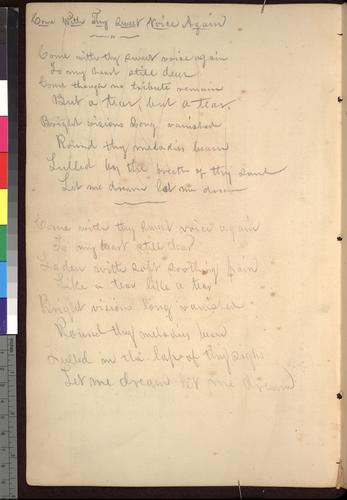 Come With Thy Sweet Voice Again
Come with thy sweet voice again
To my heart still dear
Come though no tribute remain
But a tear, but a tear.
Bright visions long vanished
Round thy melodies beam
Lulled by the breath of thy
Let me dream let me dream
Come with thy sweet voice again
To my heart still dear
Laden with soft soothing pain
Like a tear like a tear
Bright visions long vanished
Round thy melodies beam
Lulled in the lap of thy sighs
Let me dream let me dream